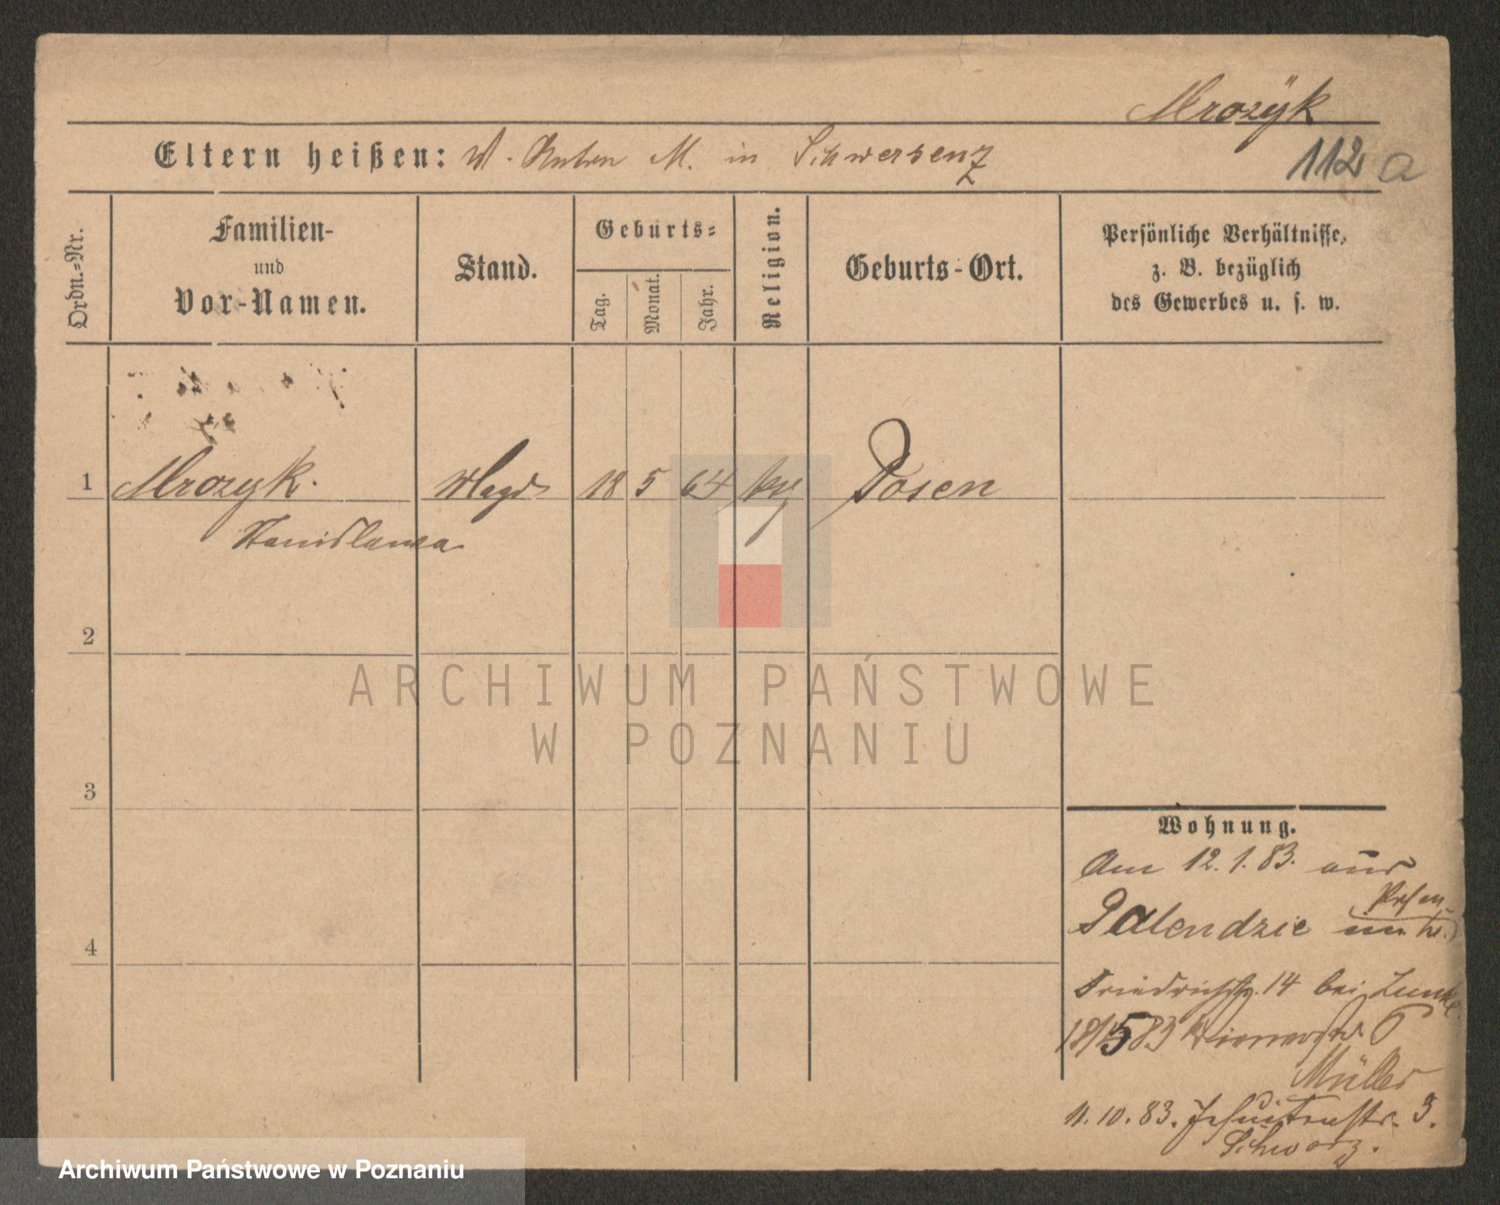 Mrozÿk
Eltern heißen: M. in Schwersenz
112 a
Ordn.-Nr.
Familien-
und
Vor-Namen.
Stand.
Geburts-
Tag.
Monat.
Jahr.
Religion.
Geburts-Ort.
Persönliche Verhältnisse,
z. B. bezüglich
des Gewerbes u. s. w.
1 Mrozyk. Magd 18 5 64 Posen
Stanislawa
2
3
4
Wohnung.
Am 12.1.83. aus
Posen
Palendzie
Friedrichstr. 14 bei
83
Müller
11.10.83. Jesuitenstr. 3.
Schwarz.
ARCHIWUM PAŃSTWOWE
W POZNANIU
Archiwum Państwowe w Poznaniu